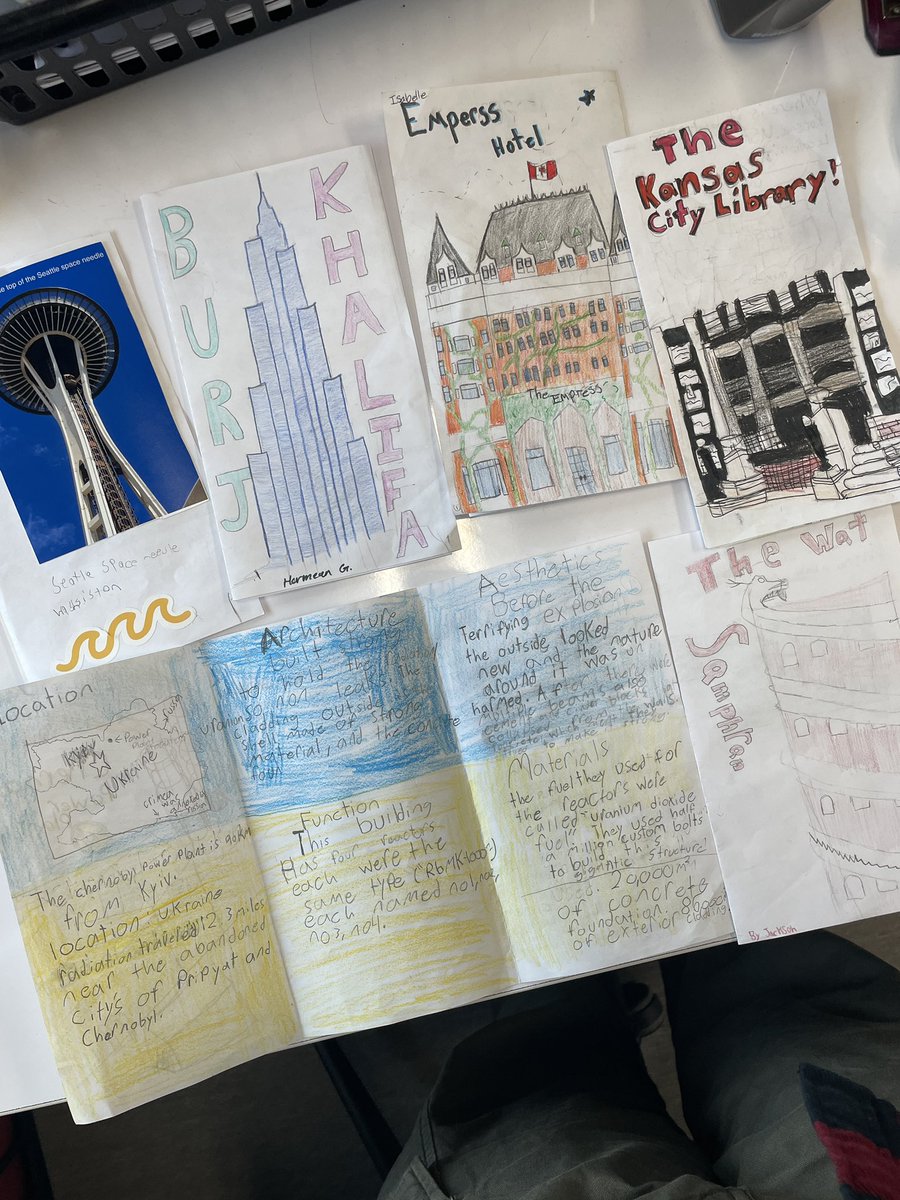 e top of the Seattle space needle
Seatle SPace needle
BURJ
KHALIFA
Hermeen G.
Isabelle
Emperss
Hotel
The "EMPRESS"
The
Kansas
City Library!
The Wat
Samphran
By Jackson
Location
←Power
Plant
Kyiv
Ukraine
Russia
crimea
The chernobyl Power Plant is
from Kyiv.
location: Ukraine
radiation traveled 12,3 miles
near the abandoned
City's of Pripyat and
Chernobyl.
Architecture
built strong
to hold the
uranium so no leaks. The
cladding outside the
shell made of strong
material, and the concrete
Function
This building
Has four reactors
each were the
same type (RbMK1000s)
each named no1, no2,
no3, no4.
Aesthetics
Before the
Terrifying explosion
the outside looked
new and the nature
around it was un
harmed. After there were
Materials
the fuel they used for
the reactors were
called "uranium dioxide
fuel". They used half
a million custom bolts
to build this
gigantic structure!
20,000m³,
of concrete
foundation.
of exterior cladding